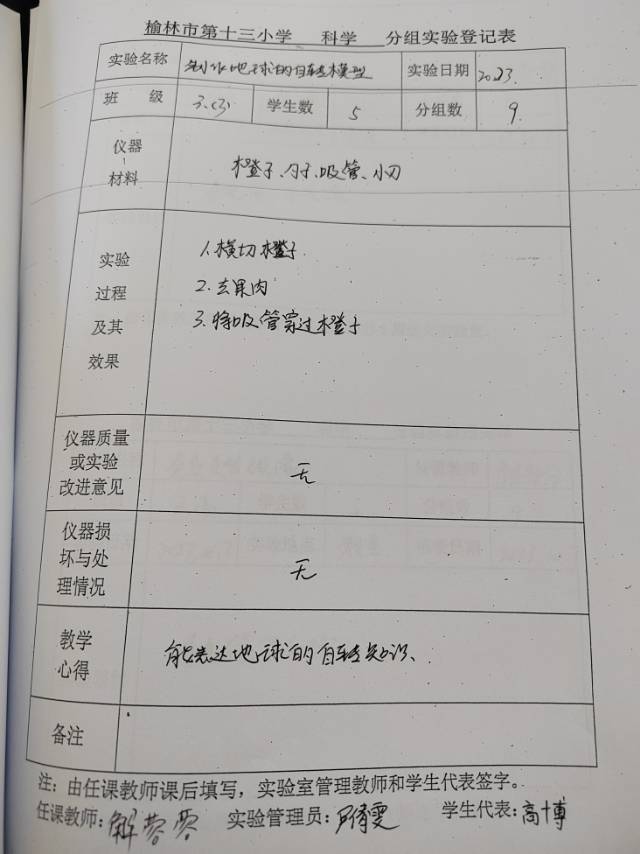 榆林市第十三小学 科学 分组实验登记表
实验名称 制作地球的自转模型 实验日期 2023.
班 级 三.(3) 学生数 5 分组数 9.
仪器
材料
橙子、勺子、吸管、小刀
实验
过程
及其
效果
1.横切橙子
2.去果肉
3.将吸管穿过橙子
仪器质量
或实验
改进意见
无
仪器损
坏与处
理情况
无
教学
心得
能表达地球的自转知识、
备注
注：由任课教师课后填写，实验室管理教师和学生代表签字。
任课教师：解蓉蓉 实验管理员： 学生代表：高博